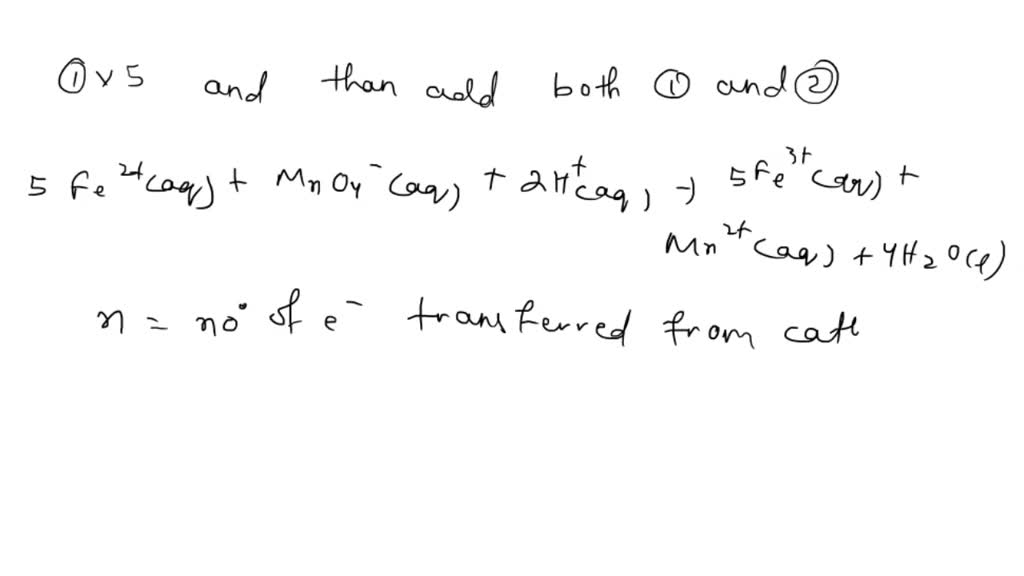 ① × 5 and than add both ① and ②
5 Fe²⁺(aq) + MnO₄⁻(aq) + 2H⁺(aq) → 5Fe³⁺(aq) +
Mn²⁺(aq) + 4H₂O(l)
n = no of e⁻ transferred from cath